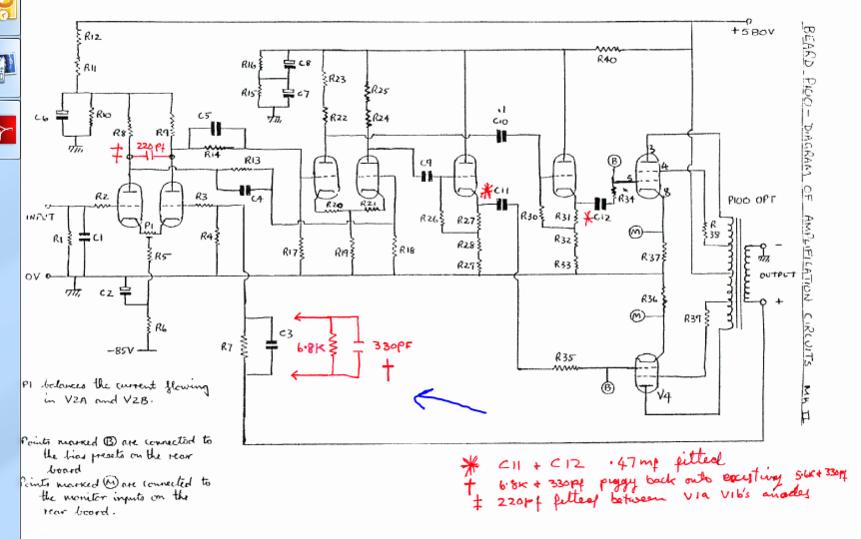 R12
R11
C6
R10
R8
R9
‡
220Pf
C5
R14
R13
C4
R2
R3
P1
INPUT
R1
C1
R4
R5
0V
C2
R6
-85V
R7
C3
6.8K
330PF
†
R16
C8
R15
C7
R23
R22
R25
R24
R20
R21
R17
R19
R18
C9
R26
R27
R28
R29
* C11
.1
C10
R30
R31
R32
R33
* C12
R40
+580V
B
R34
3
4
5
8
M
R37
R36
M
R35
B
V4
R38
R39
P100 OPT
-
OUTPUT
+
BEARD P100 - DIAGRAM OF AMPLIFICATION CIRCUITS MK II
P1 balances the current flowing
in V2A and V2B.
Points marked (B) are connected to
the bias presets on the rear
board
Points marked (M) are connected to
the monitor inputs on the
rear board.
* C11 + C12 .47mf fitted
† 6.8K + 330pf piggy back onto existing 5.6K + 330pf
‡ 220pf fitted between V1a V1b's anodes